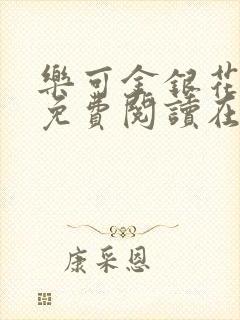 樂可金銀花
免費閱讀在
康采恩